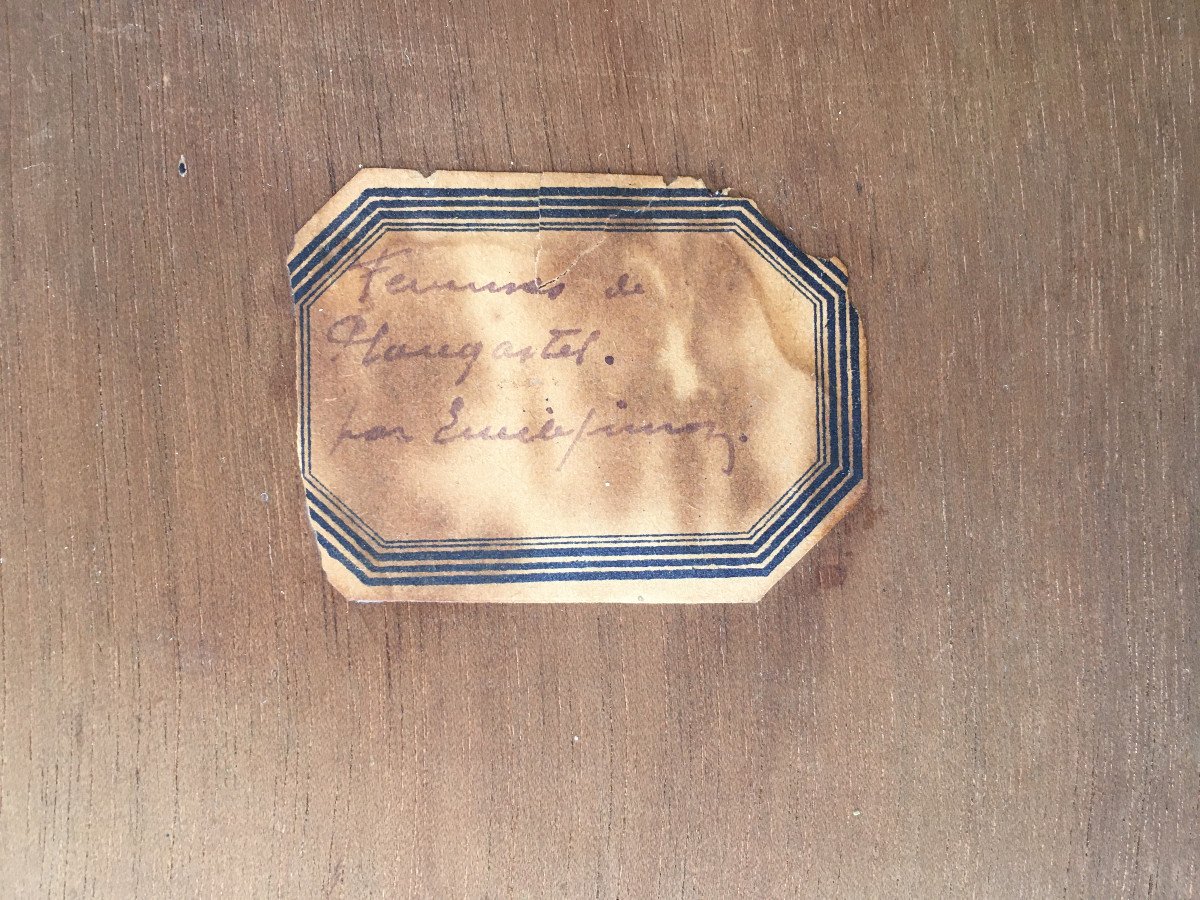 Femmes de
Plougastel.
par Emile Simon.